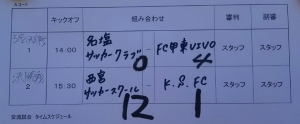 Aコート
キックオフ 組み合わせ 審判 副審
1 14:00 名塩サッカークラブ 0 - FC甲東VIVO 4 スタッフ スタッフ
決勝戦
2 15:30 西宮サッカースクール 12 - K.S.FC 1 スタッフ スタッフ
交流試合 タイムスケジュール